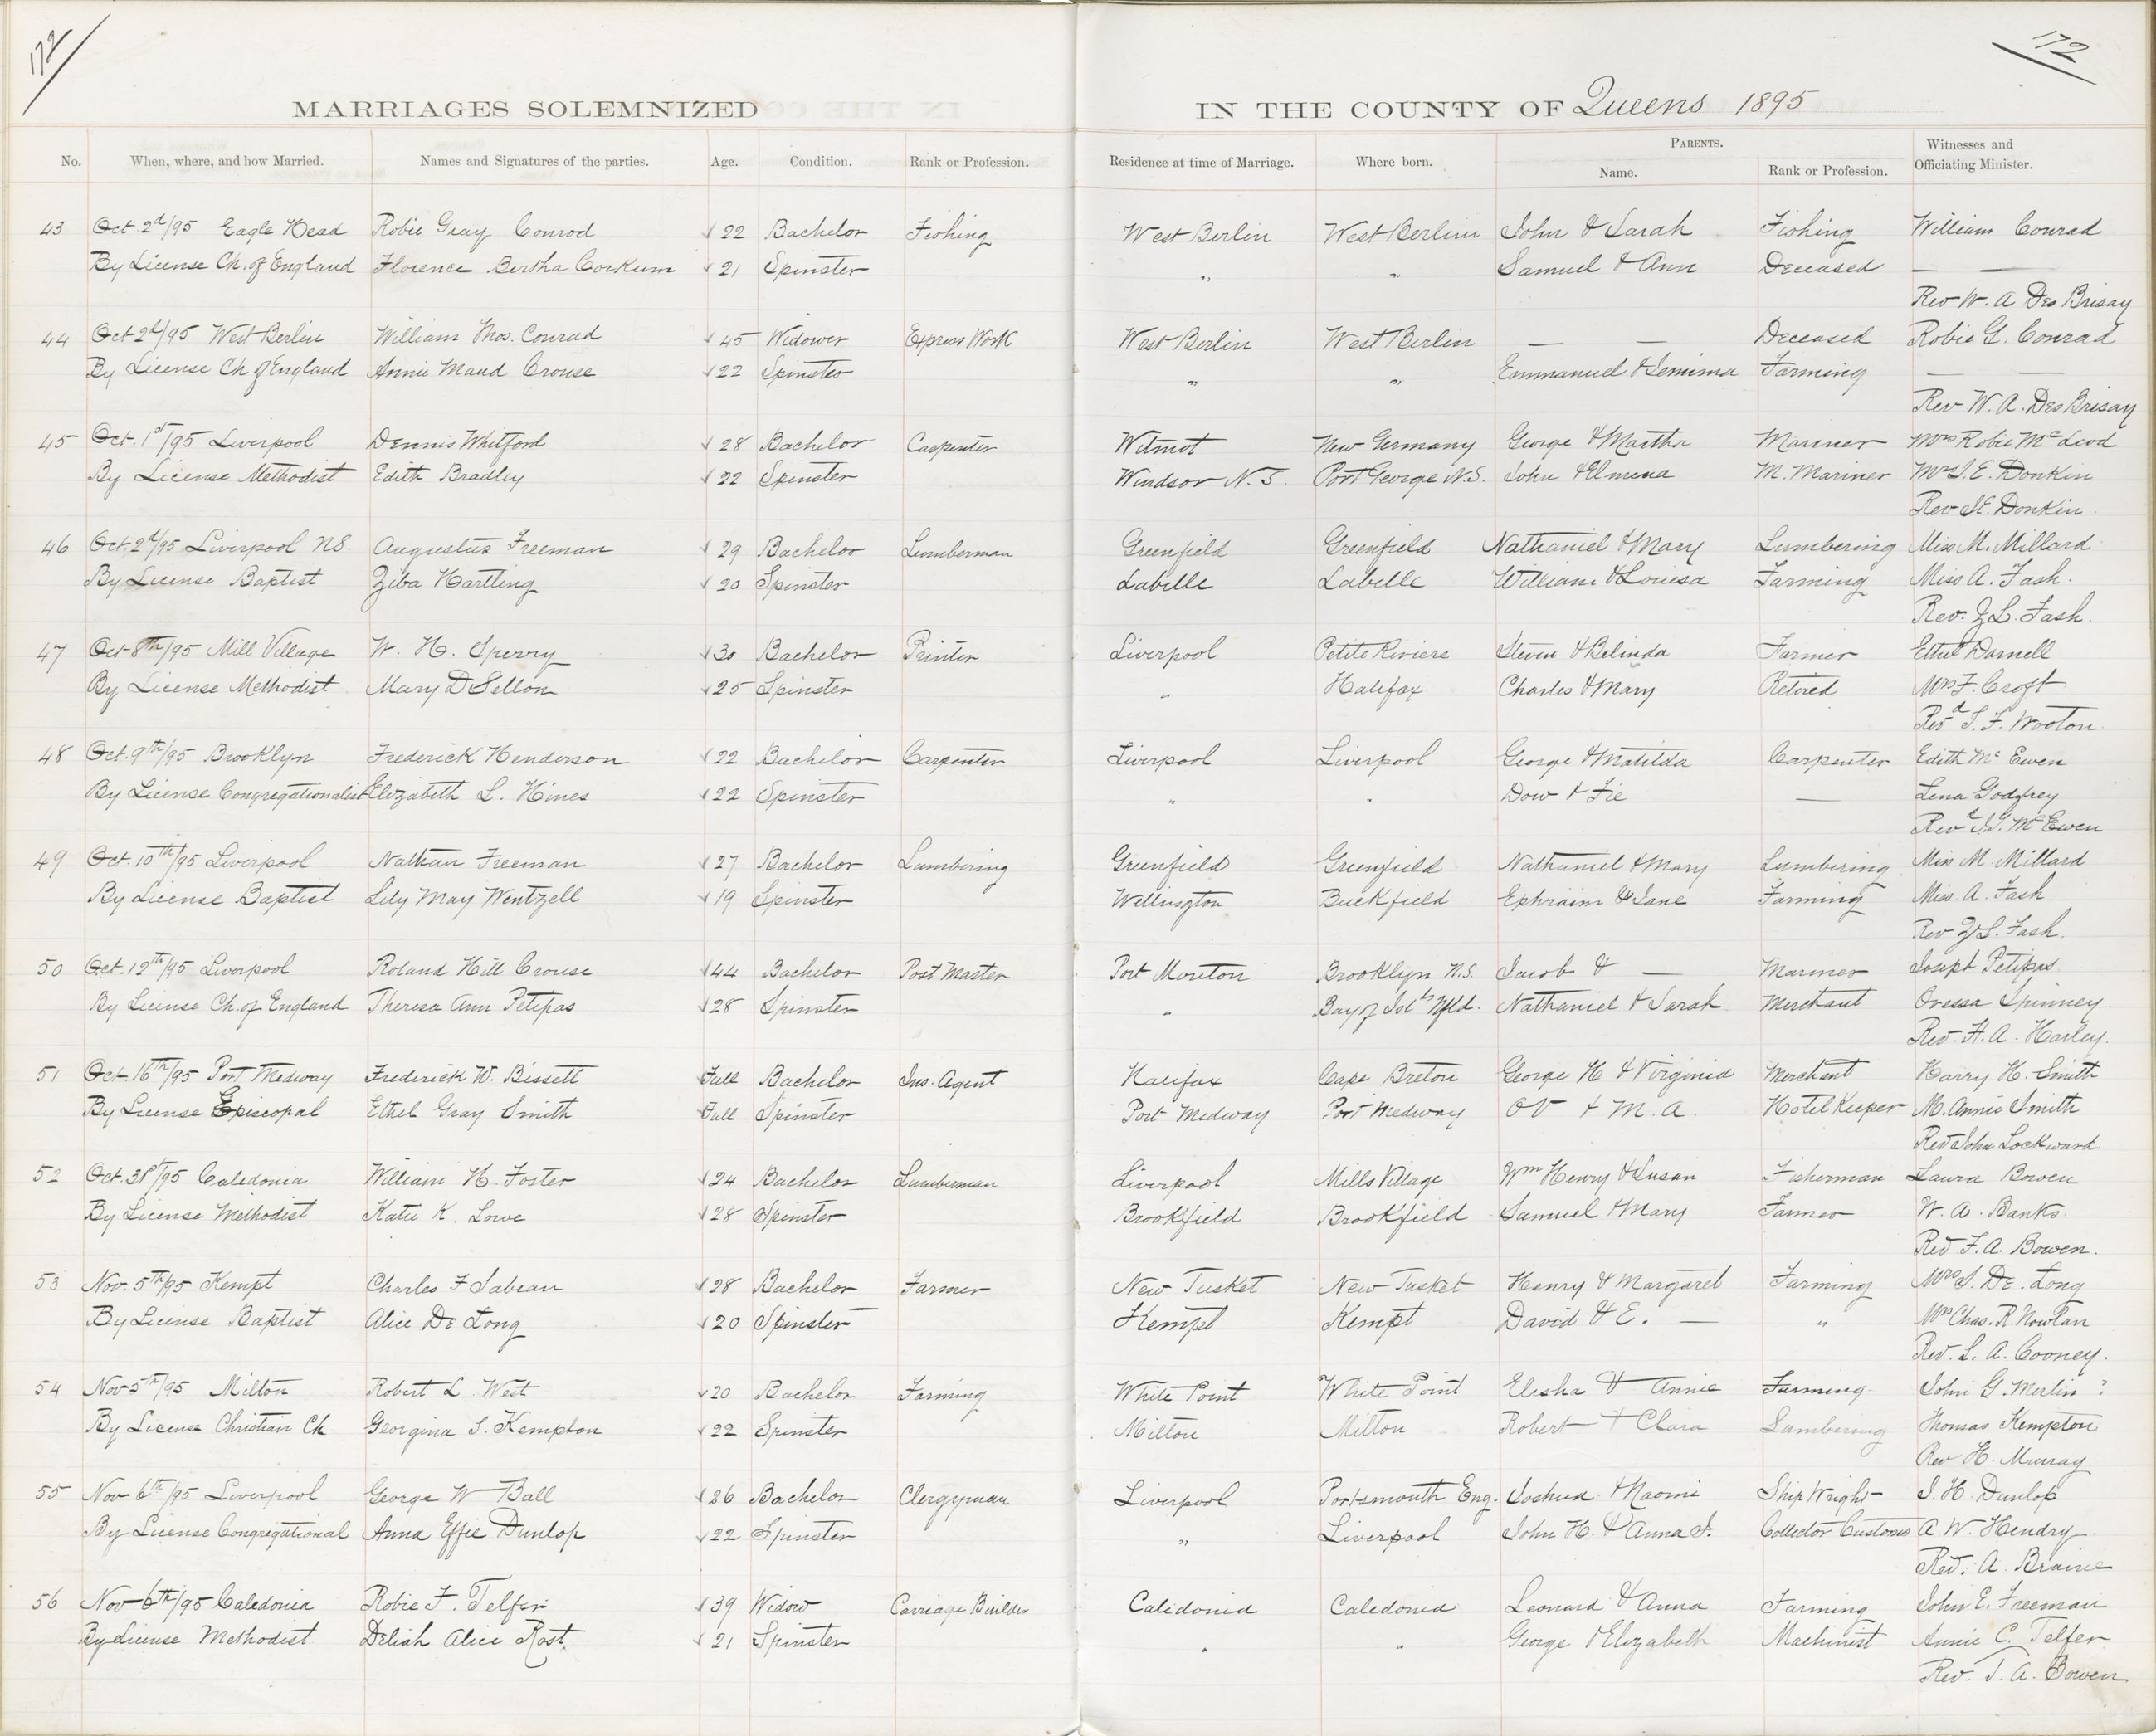 172 172
MARRIAGES SOLEMNIZED IN THE COUNTY OF Queens 1895
No. When, where, and how Married. Names and Signatures of the parties. Age. Condition. Rank or Profession. Residence at time of Marriage. Where born. PARENTS. Name. Rank or Profession. Witnesses and Officiating Minister.
43 Oct 2d/95 Eagle Head Robie Gray Conrod √22 Bachelor Fishing West Berlin West Berlin John & Sarah Fishing William Conrad
By License Ch. of England Florence Bertha Corkum √21 Spinster " " Samuel & Ann Deceased — —
Rev W. A Des Brisay
44 Oct 2d/95 West Berlin William Thos. Conrad √45 Widower Express Work West Berlin West Berlin — — Deceased Robie G. Conrad
By License Ch of England Annie Maud Crouse √22 Spinster " " Emmanuel & Jemima Farming — —
Rev W. A. Des Brisay
45 Oct. 1st/95 Liverpool Dennis Whitford √28 Bachelor Carpenter Wilmot New Germany George & Martha Mariner Mrs Robie McLeod
By License Methodist Edith Bradley √22 Spinster Windsor N. S. Port George N.S. John & Elmena M. Mariner Mrs J. E. Donkin
Rev J.E. Donkin
46 Oct. 2d/95 Liverpool NS. Augustus Freeman √29 Bachelor Lumberman Greenfield Greenfield Nathaniel & Mary Lumbering Miss M. Millard
By License Baptist Ziba Hartling √20 Spinster Labelle Labelle William & Louisa Farming Miss A. Fash.
Rev. Z L. Fash.
47 Oct 8th/95 Mill Village W. H. Sperry √30 Bachelor Printer Liverpool Petite Riviere Steven & Belinda Farmer Ethel Darnell
By License Methodist Mary D Sellon √25 Spinster " Halifax Charles & Mary Retired Mrs F. Croft
Revd J. F. Wooton
48 Oct. 9th/95 Brooklyn Frederick Henderson √22 Bachelor Carpenter Liverpool Liverpool George & Matilda Carpenter Edith McEwen
By License Congregationalist Elizabeth L. Hines √22 Spinster " " Dow & Fie — Lena Godfrey
Revd McEwen
49 Oct. 10th/95 Liverpool Nathan Freeman √27 Bachelor Lumbering Greenfield Greenfield Nathaniel & Mary Lumbering Miss M. Millard
By License Baptist Lily May Wentzell √19 Spinster Wellington Buckfield Ephraim & Jane Farming Miss A. Fash
Rev Z L. Fash.
50 Oct. 12th/95 Liverpool Roland Hill Crouse √44 Bachelor Post Master Port Mouton Brooklyn N.S. Jacob & — Mariner Joseph Petipas
By License Ch. of England Theresa Ann Petipas √28 Spinster " Bay of Isl'ds Nfld. Nathaniel & Sarah Merchant Oressa Spinney
Rev. H. A. Harley.
51 Oct. 16th/95 Port Medway Frederick W. Bissett Full Bachelor Ins. Agent Halifax Cape Breton George H & Virginia Merchant Harry H. Smith
By License Episcopal Ethel Gray Smith Full Spinster Port Medway Port Medway O V & M. A. Hotel Keeper M. Annie Smith
Rev John Lockward
52 Oct. 31st/95 Caledonia William H. Foster √24 Bachelor Lumberman Liverpool Mills Village Wm Henry & Susan Fisherman Laura Bowen
By License Methodist Katie K. Lowe √28 Spinster Brookfield Brookfield Samuel & Mary Farmer W. A. Banks
Rev. F. A. Bowen.
53 Nov. 5th/95 Kempt Charles F Sabean √28 Bachelor Farmer New Tusket New Tusket Henry & Margaret Farming Mrs S. De. Long
By License Baptist Alice De Long √20 Spinster Kempt Kempt David & E. — " Mrs Chas. R. Nowlan
Rev. L. A. Cooney.
54 Nov 5th/95 Milton Robert L. West √20 Bachelor Farming White Point White Point Elisha & Annie Farming John G. Merlin ?
By License Christian Ch Georgina S. Kempton √22 Spinster Milton Milton Robert & Clara Lumbering Thomas Kempton
Rev H. Murray
55 Nov 6th/95 Liverpool George W Ball √26 Bachelor Clergyman Liverpool Portsmouth Eng. Joshua & Naomi Ship Wright J. H. Dunlop
By License Congregational Anna Effie Dunlop √22 Spinster " Liverpool John H. & Anna J. Collector Customs A. W. Hendry
Rev. A. Braine
56 Nov 6th/95 Caledonia Robie F. Telfer √39 Widow Carriage Builder Caledonia Caledonia Leonard & Anna Farming John E. Freeman
By License Methodist Deliah Alice Rost √21 Spinster " " George & Elizabeth Machinist Annie C. Telfer
Rev. T. A. Bowen